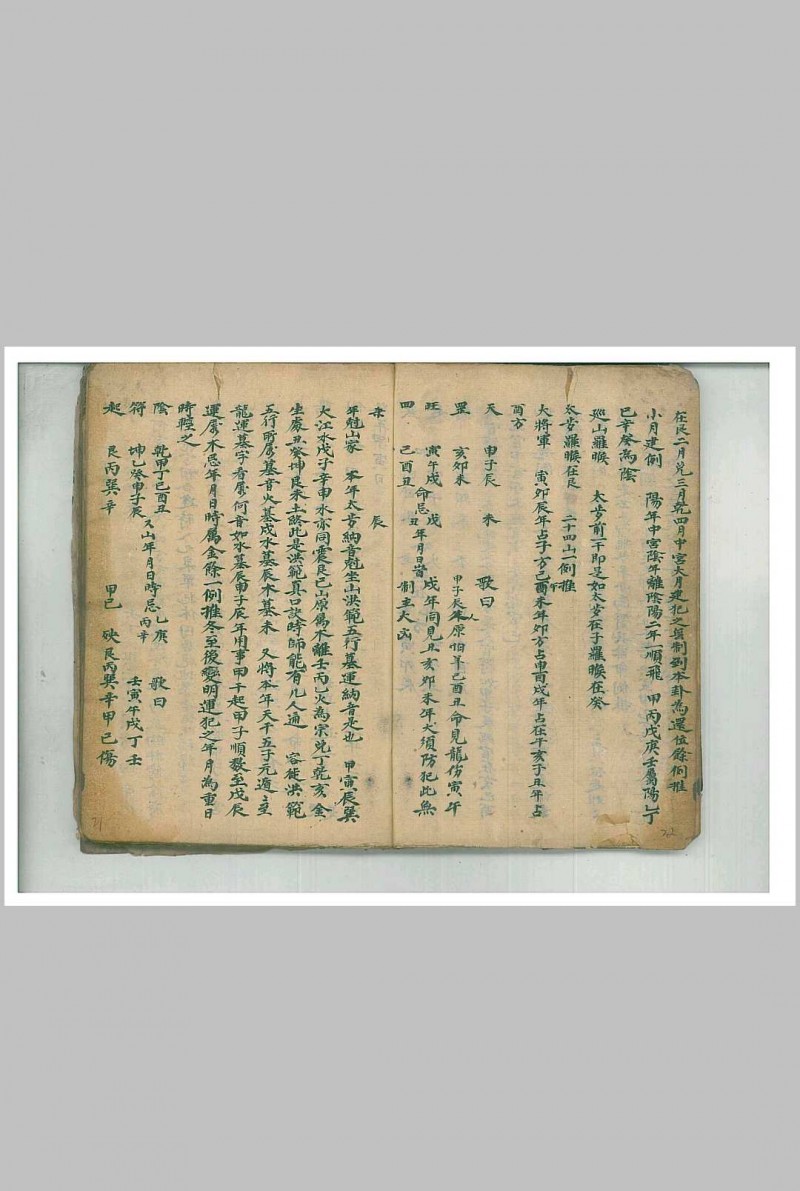 在艮二月兊三月乾四月中宮大月建犯之與制到本卦為還位餘倒推
小月建例 陽年中宮陰年離陰陽二年一順飛 甲丙戊庚壬屬陽乙丁
已辛癸為陰
廵山羅睺 太岁前一干即是如太岁在子羅睺在癸
太岁羅睺在艮 二十四山一例推
大將軍 寅卯辰年占子方已午未年卯方占申酉戌年占在午亥子丑年占
酉方
天 申子辰 未 歌曰 甲子辰 原怕羊已酉丑命見龍伤寅午
罡 亥卯未
旺 寅午戌 戌 戌年同見丑亥卯未年犬須防犯此無
命忌 年月日皆
四 已酉丑 制主大凶
柰 辰
年尅山家 本年太岁納音尅坐山洪範五行墓運納音是也 甲寅辰巽
大江水戌子辛申水亦同震艮已山原属木離壬丙乙火為宗兊丁乾亥金
生處丑癸坤艮未土終此是洪範真口訣時師能有几人通 容徒洪範
五行所属墓音火墓戌水墓辰木墓未 又將本年天干五子元遁之至
龍運墓字看属何音如水墓辰甲子辰年用事甲干起甲子順数至戊辰
運属木忌年月日時属金餘一例推冬至後變明運犯之年月為重日
時輕之
陰 乾甲丁已酉丑 乙庚 歌曰
符 坤乙癸申子辰 又山年月日時忌 丙辛 壬寅午戌丁壬
起 艮丙巽辛 甲已 砄艮丙巽辛甲已傷
31
32